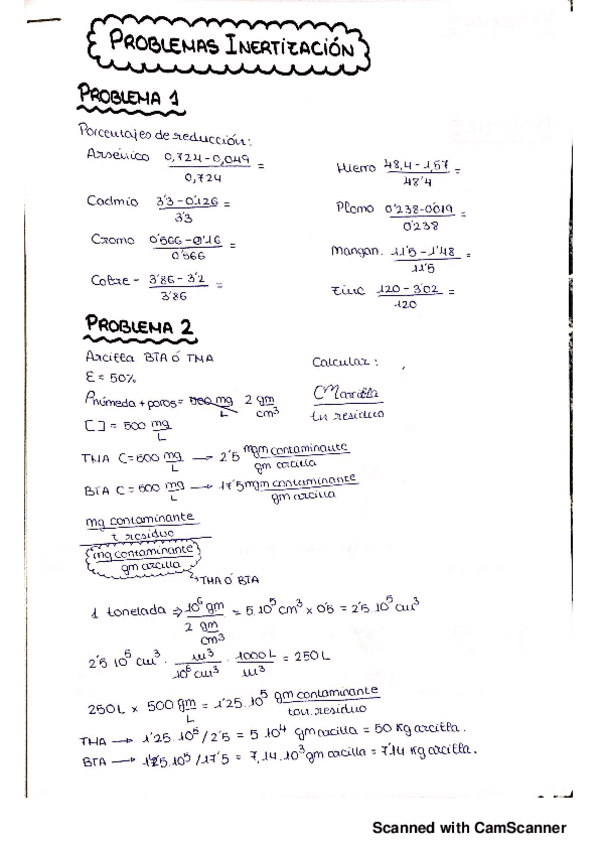 PROBLEMAS INERTIZACIÓN
PROBLEMA 1
Porcentajes de reducción:
Arsénico 0,724-0,049 / 0,724 =
Cadmio 3'3-0'126 / 3'3 =
Cromo 0'566-0'16 / 0'566 =
Cobre - 3'86-3'2 / 3'86 =
Hierro 48,4-1,57 / 48'4 =
Plomo 0'238-0'019 / 0'238 =
Mangan. 11'5-1'48 / 11'5 =
Zinc 120-3'02 / 120 =
PROBLEMA 2
Arcilla BTA ó TMA
ε = 50%
ρhúmeda+poros = 2 gm/cm³
[ ] = 500 mg/L
Calcular:
CM arcilla / tn residuo
TMA C=500 mg/L → 2'5 mgm contaminante / gm arcilla
BTA C=500 mg/L → 17'5 mgm contaminante / gm arcilla
mg contaminante / t residuo
mg contaminante / gm arcilla
→ TMA Ó BTA
1 tonelada ⇒ 10⁶ gm / 2 gm/cm³ = 5·10⁵ cm³ x 0'5 = 2'5 10⁵ cm³
2'5 10⁵ cm³ · m³/10⁶ cm³ · 1000 L/m³ = 250 L
250 L x 500 gm/L = 1'25·10⁵ gm contaminante / ton. residuo
TMA → 1'25·10⁵/2'5 = 5·10⁴ gm arcilla = 50 Kg arcilla.
BTA → 1'25·10⁵/17'5 = 7,14·10³ gm arcilla = 7'14 Kg arcilla.
Scanned with CamScanner